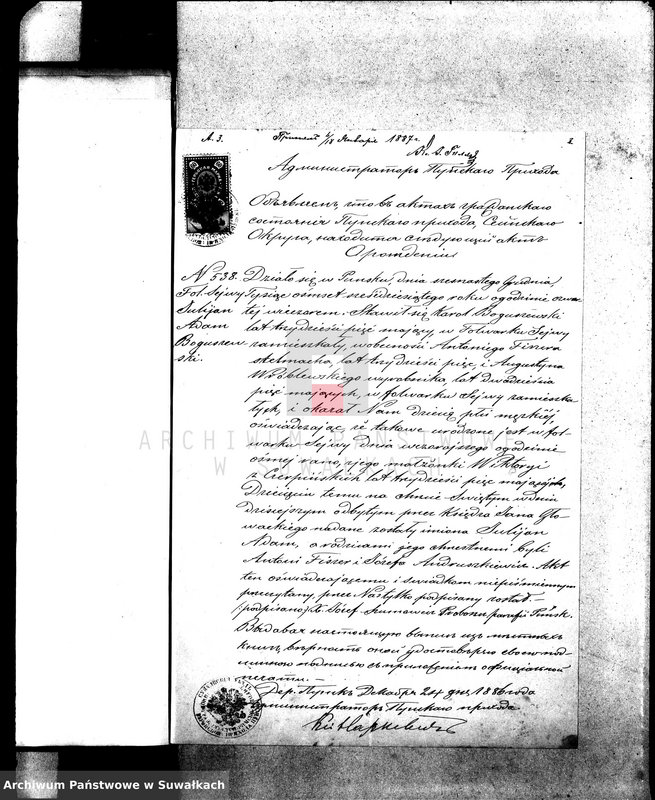 А. 3. Января 1887 г. 2
Администраторъ Пунскаго Прихода
Объявляетъ что въ актахъ гражданскаго
состоянія Пунскаго прихода, Сейнскаго
Округа, находится слѣдующій актъ
О рожденіи
N 538. Działo się w Puńsku, dnia szesnastego Grudnia,
Fol. Sejwy Tysiąc ośmset sześćdziesiątego roku o godzinie
Julijan tej wieczorem. Stawił się Karol Boguszewski
Adam lat trzydzieści pięć mający w Folwarku Sejwy
Boguszew zamieszkały, w obecności Antoniego Fiszera
ski. stelmacha, lat trzydzieści pięć, i Augustyna
Wróblewskiego wyrobnika, lat dwadzieścia
pięć mających, w folwarku Sejwy zamieszka
łych, i okazał Nam dziecię płci męzkiéj
oświadczając, iż takowe urodzone jest w fol-
warku Sejwy dnia wczorajszego o godzinie
ósmej rano, z jego małżonki Wiktoryi
z Cierpińskich lat trzydzieści pięć mającej.
Dziecięciu temu na Chrzcie Świętym w dniu
dzisiejszym odbytym przez Księdza Jana Gło-
wackiego nadane zostały imiona Julijan
Adam, a rodzicami jego chrzestnemi byli
Antoni Fiszer i Józefa Andruszkiewicz. Akt
ten oświadczającemu i świadkom niepiśmiennym
przeczytany, przez Nas tylko podpisany został.-
(podpisano) X. Józef Proboszcz parafji Puńsk.
Выдавая настоящую выпись изъ
книгъ вѣрность оной удостовѣряю своею под-
писью съ приложеніемъ оффиціальной
печати.-
Дер. Пунскъ Декабря 24 дня 1886 года
Администраторъ Пунскаго прихода
ARCHIWUM PAŃSTWOWE
W SUWAŁKACH
Archiwum Państwowe w Suwałkach